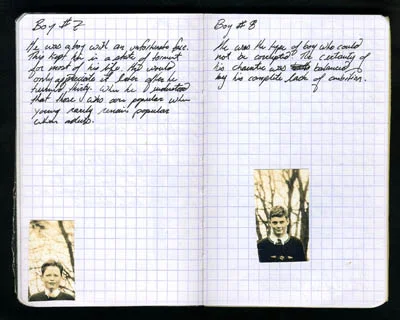 Boy # 7
He was a boy with an unfortunate face.
This kept him in a state of torment
for most of his life. He would
only appreciate it later after he
turned thirty. When he understood
that those who are popular when
young rarely remain popular
when adults.
Boy # 8
He was the type of boy who could
not be corrupted. The certainty of
his character was balanced
by his complete lack of ambition.